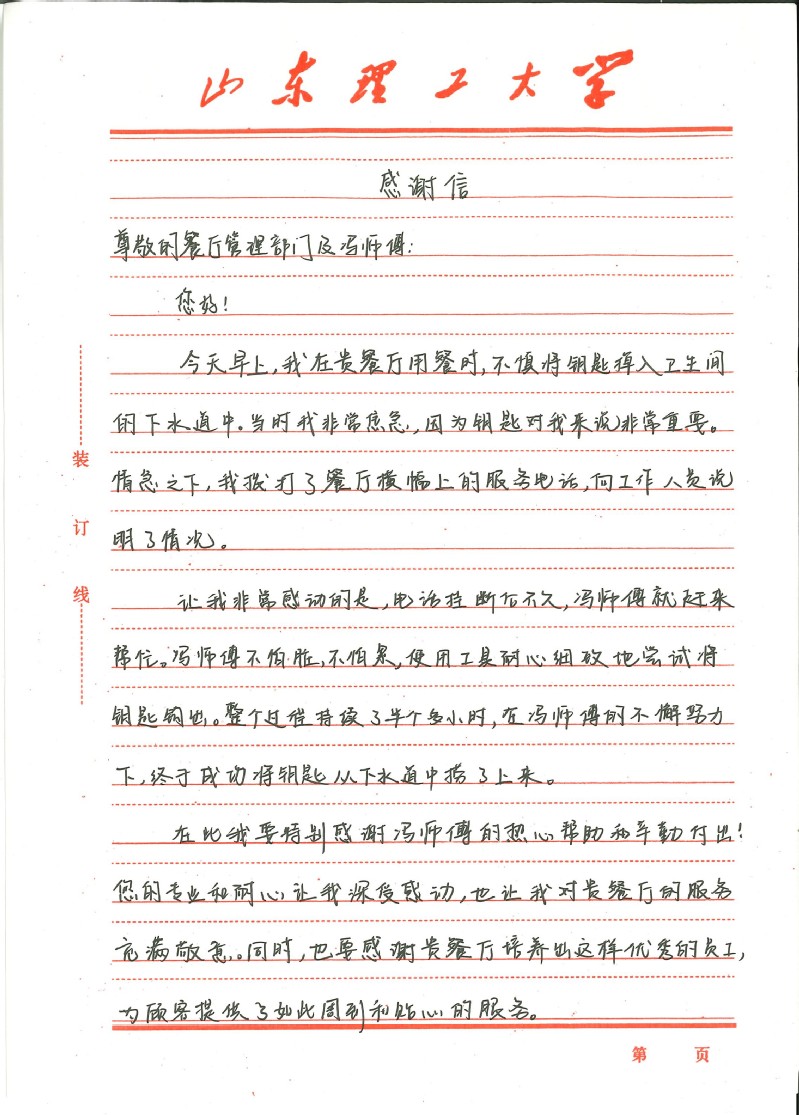 山东理工大学
感谢信
尊敬的餐厅管理部门及冯师傅：
您好！
今天早上，我在贵餐厅用餐时，不慎将钥匙掉入卫生间
的下水道中。当时我非常焦急，因为钥匙对我来说非常重要。
情急之下，我拨打了餐厅横幅上的服务电话，向工作人员说
明了情况。
让我非常感动的是，电话挂断后不久，冯师傅就赶来
帮忙。冯师傅不怕脏，不怕累，使用工具耐心细致地尝试将
钥匙钩出。整个过程持续了半个多小时，在冯师傅的不懈努力
下，终于成功将钥匙从下水道中捞了上来。
在此我要特别感谢冯师傅的热心帮助和辛勤付出！
您的专业和耐心让我深受感动，也让我对贵餐厅的服务
充满敬意。同时，也要感谢贵餐厅培养出这样优秀的员工，
为顾客提供了如此周到和贴心的服务。
装
订
线
第 页